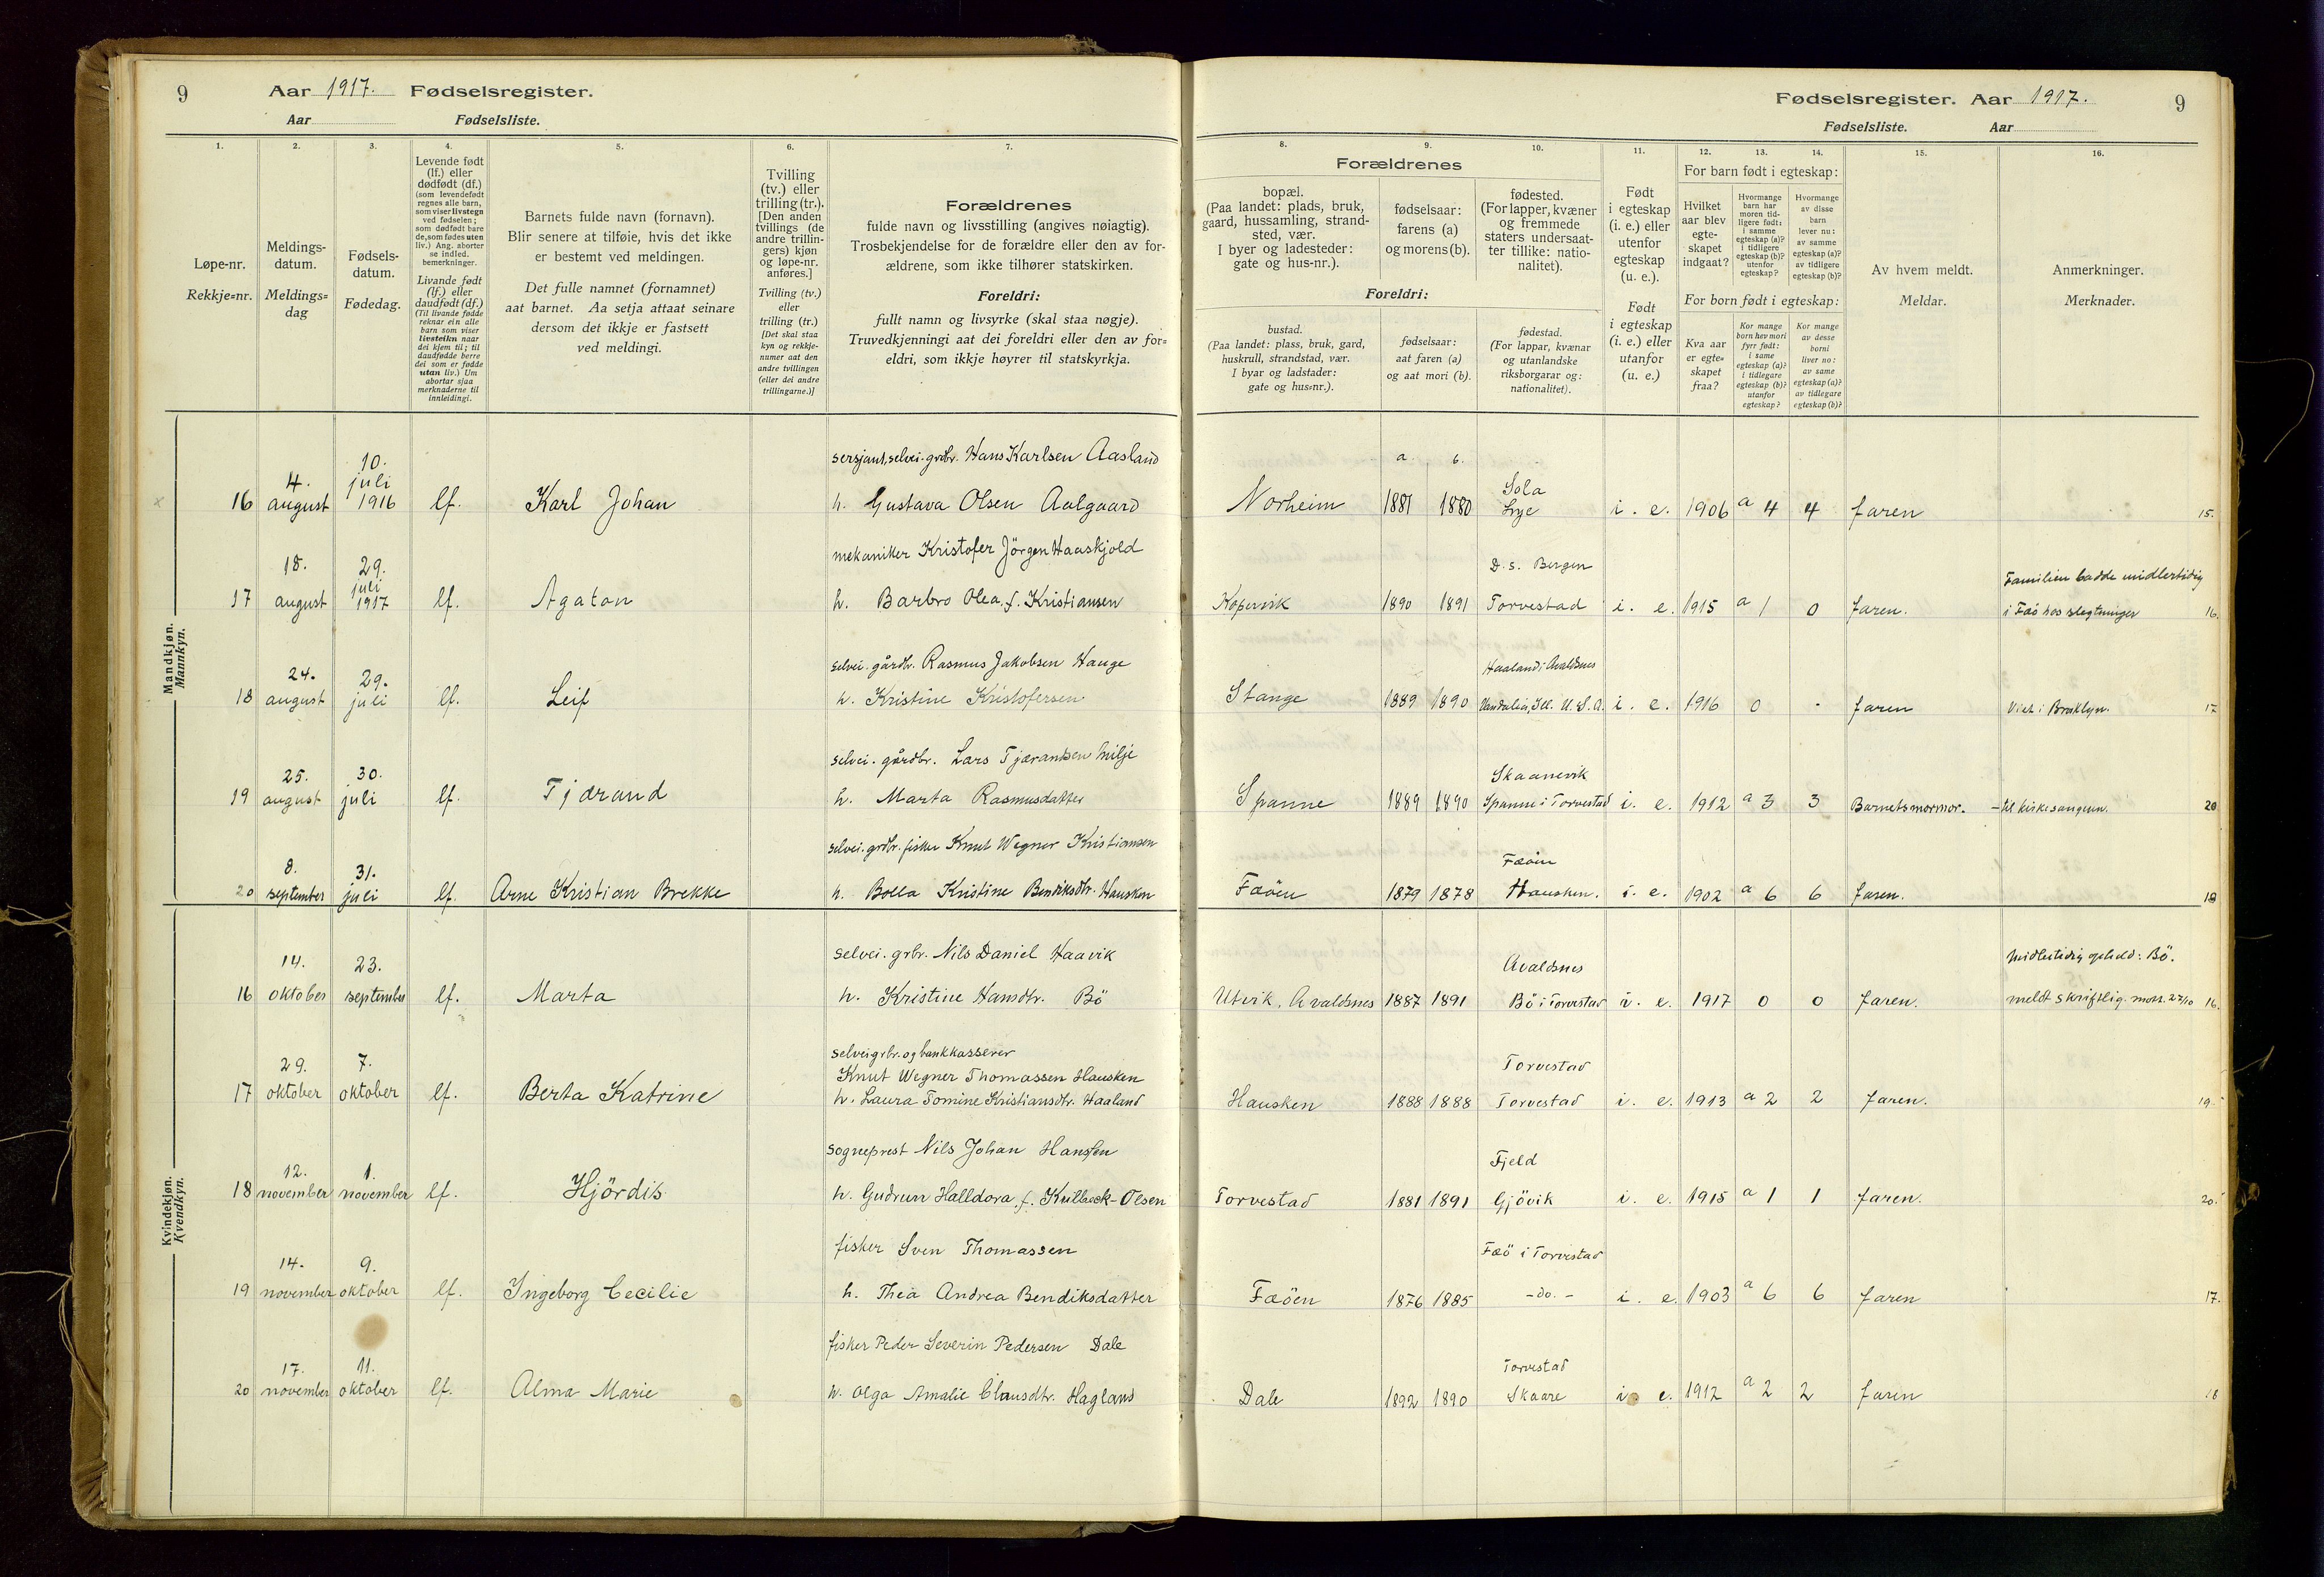 9 Aar 1917. Fødselsregister.
Aar Fødselsliste.
Fødselsregister. Aar 1917. 9
Fødselsliste. Aar
1. 2. 3. 4. 5. 6. 7. 8. 9. 10. 11. 12. 13. 14. 15. 16.
Løpe-nr.
Rekkje-nr.
Meldings-
datum.
Meldings-
dag
Fødsels-
datum.
Fødedag.
Levende født
(lf.) eller
dødfødt (df.)
(som levendefødt
regnes alle barn,
som viser livstegn
ved fødselen;
som dødfødt bare
de, som fødes uten
liv.) Ang. aborter
se indled.
bemerkninger.
Livande født
(lf.) eller
daudfødt (df.)
(Til livande fødde
reknar ein alle
barn som viser
livsteikn naar
dei kjem til; til
daudfødde berre
dei som er fødde
utan liv.) Um
abortar sjaa
merknaderne til
innleidingi.
Barnets fulde navn (fornavn).
Blir senere at tilføie, hvis det ikke
er bestemt ved meldingen.
Det fulle namnet (fornamnet)
aat barnet. Aa setja attaat seinare
dersom det ikkje er fastsett
ved meldingi.
Tvilling
(tv.) eller
trilling (tr.).
[Den anden
tvillings (de
andre trillin-
gers) kjøn
og løpe-nr.
anføres.]
Tvilling (tv.)
eller
trilling (tr.)
[Det skal staa
kyn og rekkje-
numer aat den
andre tvillingen
(eller dei andre
trillingarne.)]
Forældrenes
fulde navn og livsstilling (angives nøiagtig).
Trosbekjendelse for de forældre eller den av for-
ældrene, som ikke tilhører statskirken.
Foreldri:
fullt namn og livsyrke (skal staa nøgje).
Truvedkjenningi aat dei foreldri eller den av for-
eldri, som ikkje høyrer til statskyrkja.
Forældrenes
bopæl.
(Paa landet: plads, bruk,
gaard, hussamling, strand-
sted, vær.
I byer og ladesteder:
gate og hus-nr.).
fødselsaar:
farens (a)
og morens (b).
fødested.
(For lapper, kvæner
og fremmede
staters undersaat-
ter tillike: natio-
nalitet).
Foreldri:
bustad.
(Paa landet: plass, bruk, gard,
huskrull, strandstad, vær.
I byar og ladstader:
gate og hus-nr.).
fødselsaar:
aat faren (a)
og aat mori (b).
fødestad.
(For lappar, kvænar
og utanlandske
riksborgarar og:
nationalitet).
Født
i egteskap
(i. e.) eller
utenfor
egteskap
(u. e.).
Født
i egteskap
(i. e.) eller
utanfor
(u. e.)
For barn født i egteskap:
Hvilket
aar blev
egte-
skapet
indgaat?
Hvormange
barn har
moren tid-
ligere født:
i samme
egteskap (a)?
i tidligere
egteskap (b)?
utenfor
egteskap?
Hvormange
av disse
barn
lever nu:
av samme
egteskap (a)?
av tidligere
egteskap (b)?
For born født i egteskap:
Kva aar
er egte-
skapet
fraa?
Kor mange
born hev mori
fyrr født:
i same
egteskap (a)?
i tidlegare
egteskap (b)?
utanfor
egteskap?
Kor mange
av desse
borni
liver no:
av same
egteskap (a)?
av tidlegare
egteskap (b)?
Av hvem meldt.
Meldar.
Anmerkninger.
Merknader.
Mandkjøn.
Mannkyn.
10. sersjant, selvei. grdbr. Hans Karlsen Aasland a. b.
4. juli Sola
16 august 1916 lf. Karl Johan h. Gustava Olsen Aalgaard Norheim 1881 1880 Lye i. e. 1906 a 4 4 faren 15.
mekaniker Kristofer Jörgen Haaskjold
18. 29. D. s. Bergen Familien hadde midlertidig
juli
17 august 1917 lf. Agaton h. Barbro Olea, f. Kristiansen Kopervik 1890 1891 Torvestad i. e. 1915 a 1 0 faren. i Fæö hos slegtninger 16.
selvei. gårdbr. Rasmus Jakobsen Hauge Haaland i Avaldsnes
24. 29.
18 august juli lf. Leif h. Kristine Kristofersen Stange 1889 1890 Vandalia, Ill. U. S. A. i. e. 1916 0 - faren Viet i Brooklyn. 17
selvei. gårdbr. Lars Tjærandsen Milje
25. 30. Skaanevik
19 august juli lf. Tjærand h. Marta Rasmusdatter Spanne 1889 1890 Spanne i Torvestad i. e. 1912 a 3 3 Barnets mormor. - til kirkesangeren. 20
selvei. grdbr. fisker Knut Wegner Kristiansen
8. 31. Fæöen
20 september juli lf. Arne Kristian Brekke h. Bolla Kristine Bendiksdtr. Hausken Fæöen 1879 1878 Hausken. i. e. 1902 a 6 6 faren. 18
Kvindekjøn.
Kvendkyn.
selvei. grbr. Nils Daniel Haavik Midlertidig ophold: Bö.
14. 23. Avaldsnes
16 oktober september lf. Marta h. Kristine Hansdtr. Bö Utvik, Avaldsnes 1887 1891 Bö i Torvestad i. e. 1917 0 0 faren. meldt skriftlig. mott. 27/10 16.
selvei grbr. og bankkasserer
29. 7. Knut Wegner Thomassen Hausken Torvestad
17 oktober oktober lf. Berta Katrine h. Laura Tomine Kristiansdtr. Haaland Hausken 1888 1888 Torvestad i. e. 1913 a 2 2 faren. 19.
sogneprest Nils Johan Hanssen
12. 1. Fjeld
18 november november lf. Hjördis h. Gudrun Halldora, f. Kulback-Olsen Torvestad 1881 1891 Gjövik i. e. 1915 a 1 1 faren. 20.
fisker Sven Thomassen
14. 9. Fæö i Torvestad
19 november oktober lf. Ingeborg Cecilie h. Thea Andrea Bendiksdatter Fæöen 1876 1885 - do. - i. e. 1903 a 6 6 faren 17.
fisker Peder Severin Pedersen Dale
17. 11. Torvestad
20 november oktober lf. Alma Marie h. Olga Amalie Clausdtr. Hagland Dale 1892 1890 Skaare i. e. 1912 a 2 2 faren 18